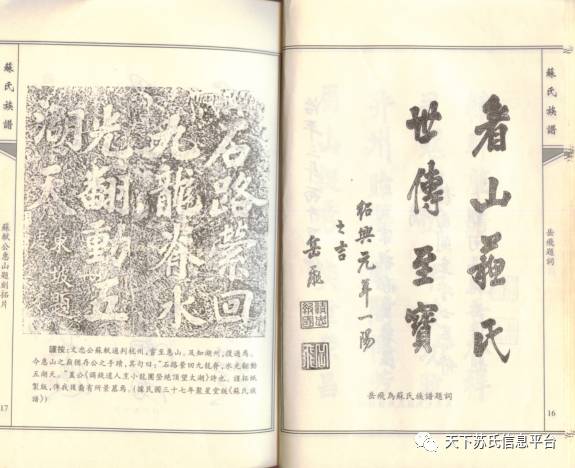 蘇氏族譜
岳飛題詞
眉山蘓氏
世傳至寶
紹興元年一陽
之吉
岳飛
岳飛為蘇氏族譜題詞
16
石路縈回
九龍脊水
光翻動五
湖天
東坡題
謹按：文忠公蘇軾通判杭州，嘗至惠山。及知湖州，復過焉。
今惠山之廟猶存公之手蹟，其句曰："石路縈回九龍脊，水光翻動
五湖天。"蓋公《謁錢道人烹小龍團登絶頂望太湖》詩也。謹拓紙
製版，俾我後裔有所景慕焉。(據民國三十七年聚星堂版《蘇氏族
譜》)
蘇氏族譜
蘇軾公惠山題刻拓片
17
天下苏氏信息平台